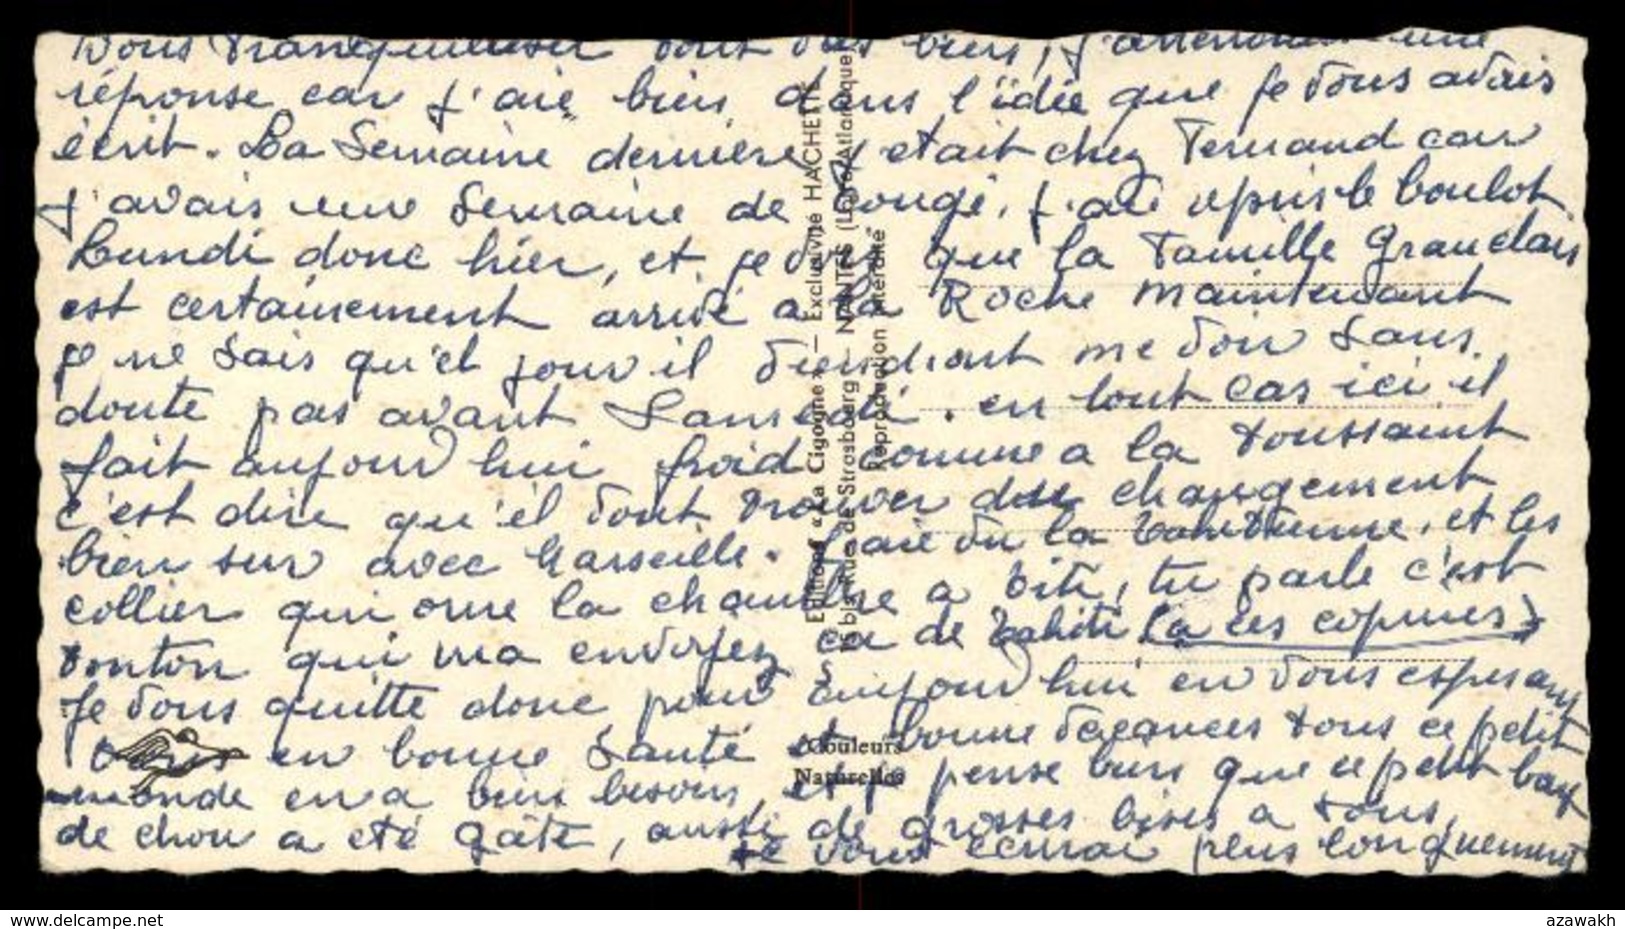 Vous tranquilliser vont bien, j'attendais une
réponse car j'aie bien dans l'idée que je vous avais
écrit. La Semaine dernière j'etait chez Fernand car
j'avais une Semaine de Congé. j'aie repris le boulot
Lundi donc hier, et je vois que la Famille Graudais
est certainement arrivé a la Roche maintenant
je ne Sais qu'el jour il viendront me voir Sans
doute pas avant Samedi. en tout cas ici il
fait aujourd hui froid comme a la toussaint
c'est dire qu'il vont trouver du changement
bien sur avec Marseille. J'aie vu la tahitienne, et les
collier qui orne la chambre a Titi, tu parle c'est
tonton qui m'a envoyez ca de Tahiti (a les copines)
Je vous quitte donc pour aujourd hui en vous esperant
tous en bonne Santé et bonne vacances tous ce petit
monde en a bien besoin, et je pense bien que ce petit bout
de chou a eté gâté, aussi de grosses bises a tous,
je vous ecrirai plus longuement
Editions « La Cigogne » — Exclusivité HACHETTE
bis, Rue de Strasbourg — NANTES (Loire-Atlantique)
Reproduction interdite
Couleurs
Naturelles
www.delcampe.net
azawakh